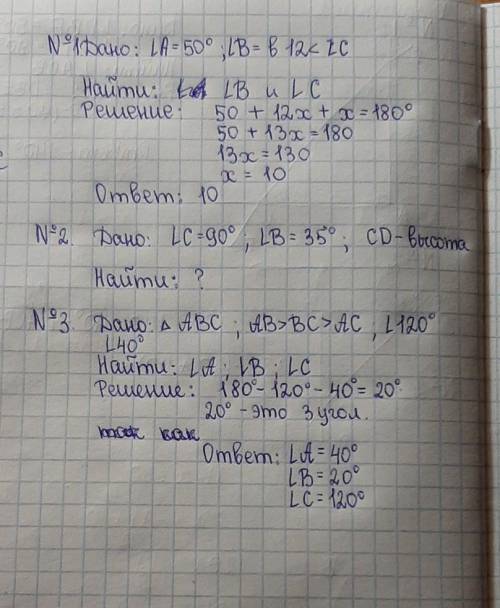 №1 Дано: ∠A = 50° ; ∠B = в 12 < ∠C
Найти: ∠B и ∠C
Решение: 50 + 12x + x = 180°
50 + 13x = 180
13x = 130
x = 10
Ответ: 10
№2. Дано: ∠C = 90° ; ∠B = 35° ; CD - высота
Найти: ?
№3. Дано: △ ABC ; AB > BC > AC , ∠120°
∠40°
Найти: ∠A ; ∠B ; ∠C
Решение: 180° - 120° - 40° = 20°
20° - это 3 угол.
так как
Ответ: ∠A = 40°
∠B = 20°
∠C = 120°